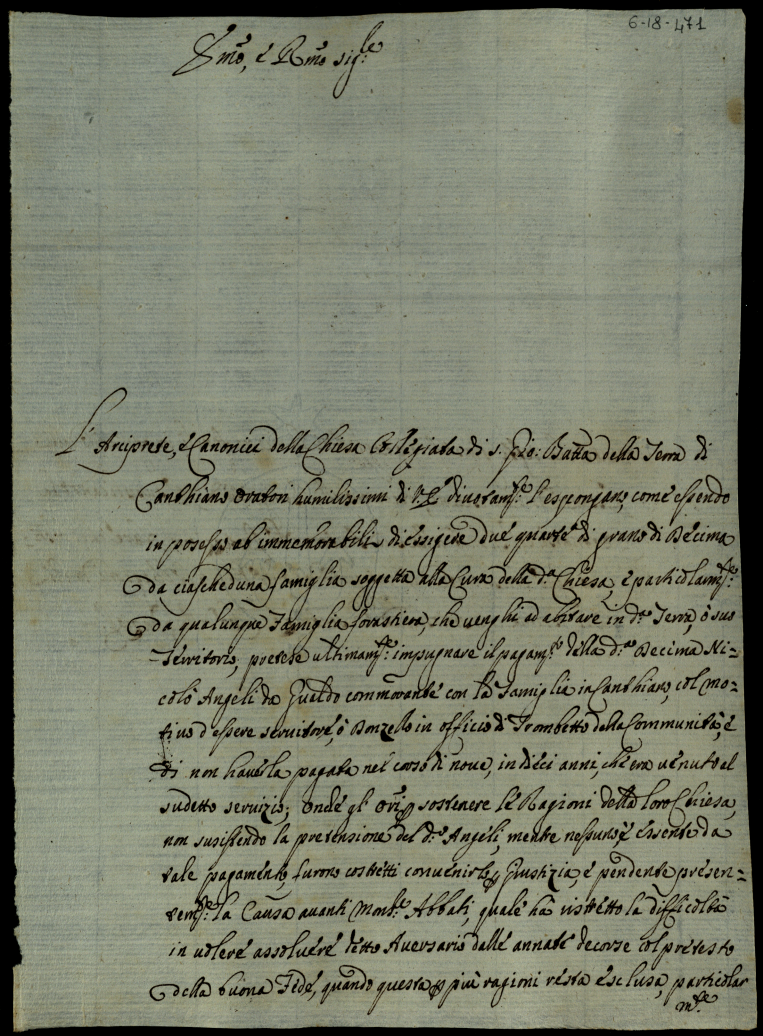 6-18-471
Emo, è Rmo sig.re
L'Arciprete, è Canonici della Chiesa Collegiata di s. Gio: Batta della Terra di
Canthiano oratori humilissimi di V.E. diuotam.te l'espongono, come essendo
in possesso ab immemorabili di esigere due quarte di grano di Decima
da ciascheduna famiglia soggetta alla Cura della d.a Chiesa, è particolarm.te
da qualunque Famiglia forastiera, che uenghi ad abitare in d.a Terra, ò suo
Territorio, pretese ultimam.te impugnare il pagam.to della d.a Decima Ni=
colò Angeli da Gualdo commorante con la Famiglia in Canthiano, col mo=
tiuo d'essere seruitore, ò Donzello in officio di Trombetto della Communità, è
di non hauerla pagata nel corso di noue, in dieci anni, che era uenuto al
sudetto seruizio; onde gl'ori p sostenere le Ragioni della loro Chiesa,
non susistendo la pretensione del d.o Angeli, mentre nessuno è essente da
tale pagamento, furono costretti conuenirlo p Giustizia, è pendente presen=
tem.te la Causa auanti Mons.re Abbati, quale hà ristretto la difficoltà
in uolere assoluere detto Auersario dalle annate decorse col pretesto
della buona Fede, quando questa p più ragioni resta esclusa, particolar
m.te